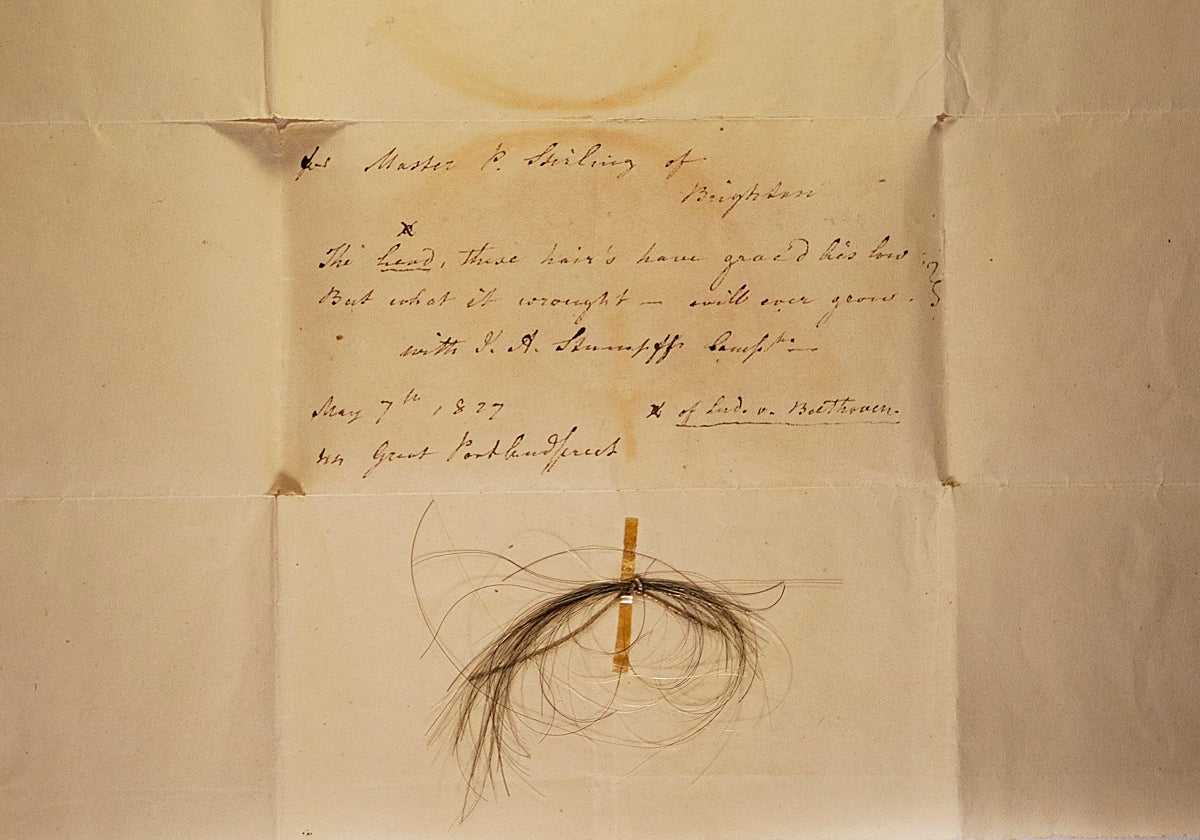 for Master P. Stirling of
Brighton
x
The head, these hair's have grac'd lies low
But what it wrought — will ever grow.
with J. A. Stumpff's Compts
May 7th, 1827
44 Great Portlandstreet
x of Lud. v. Beethoven.